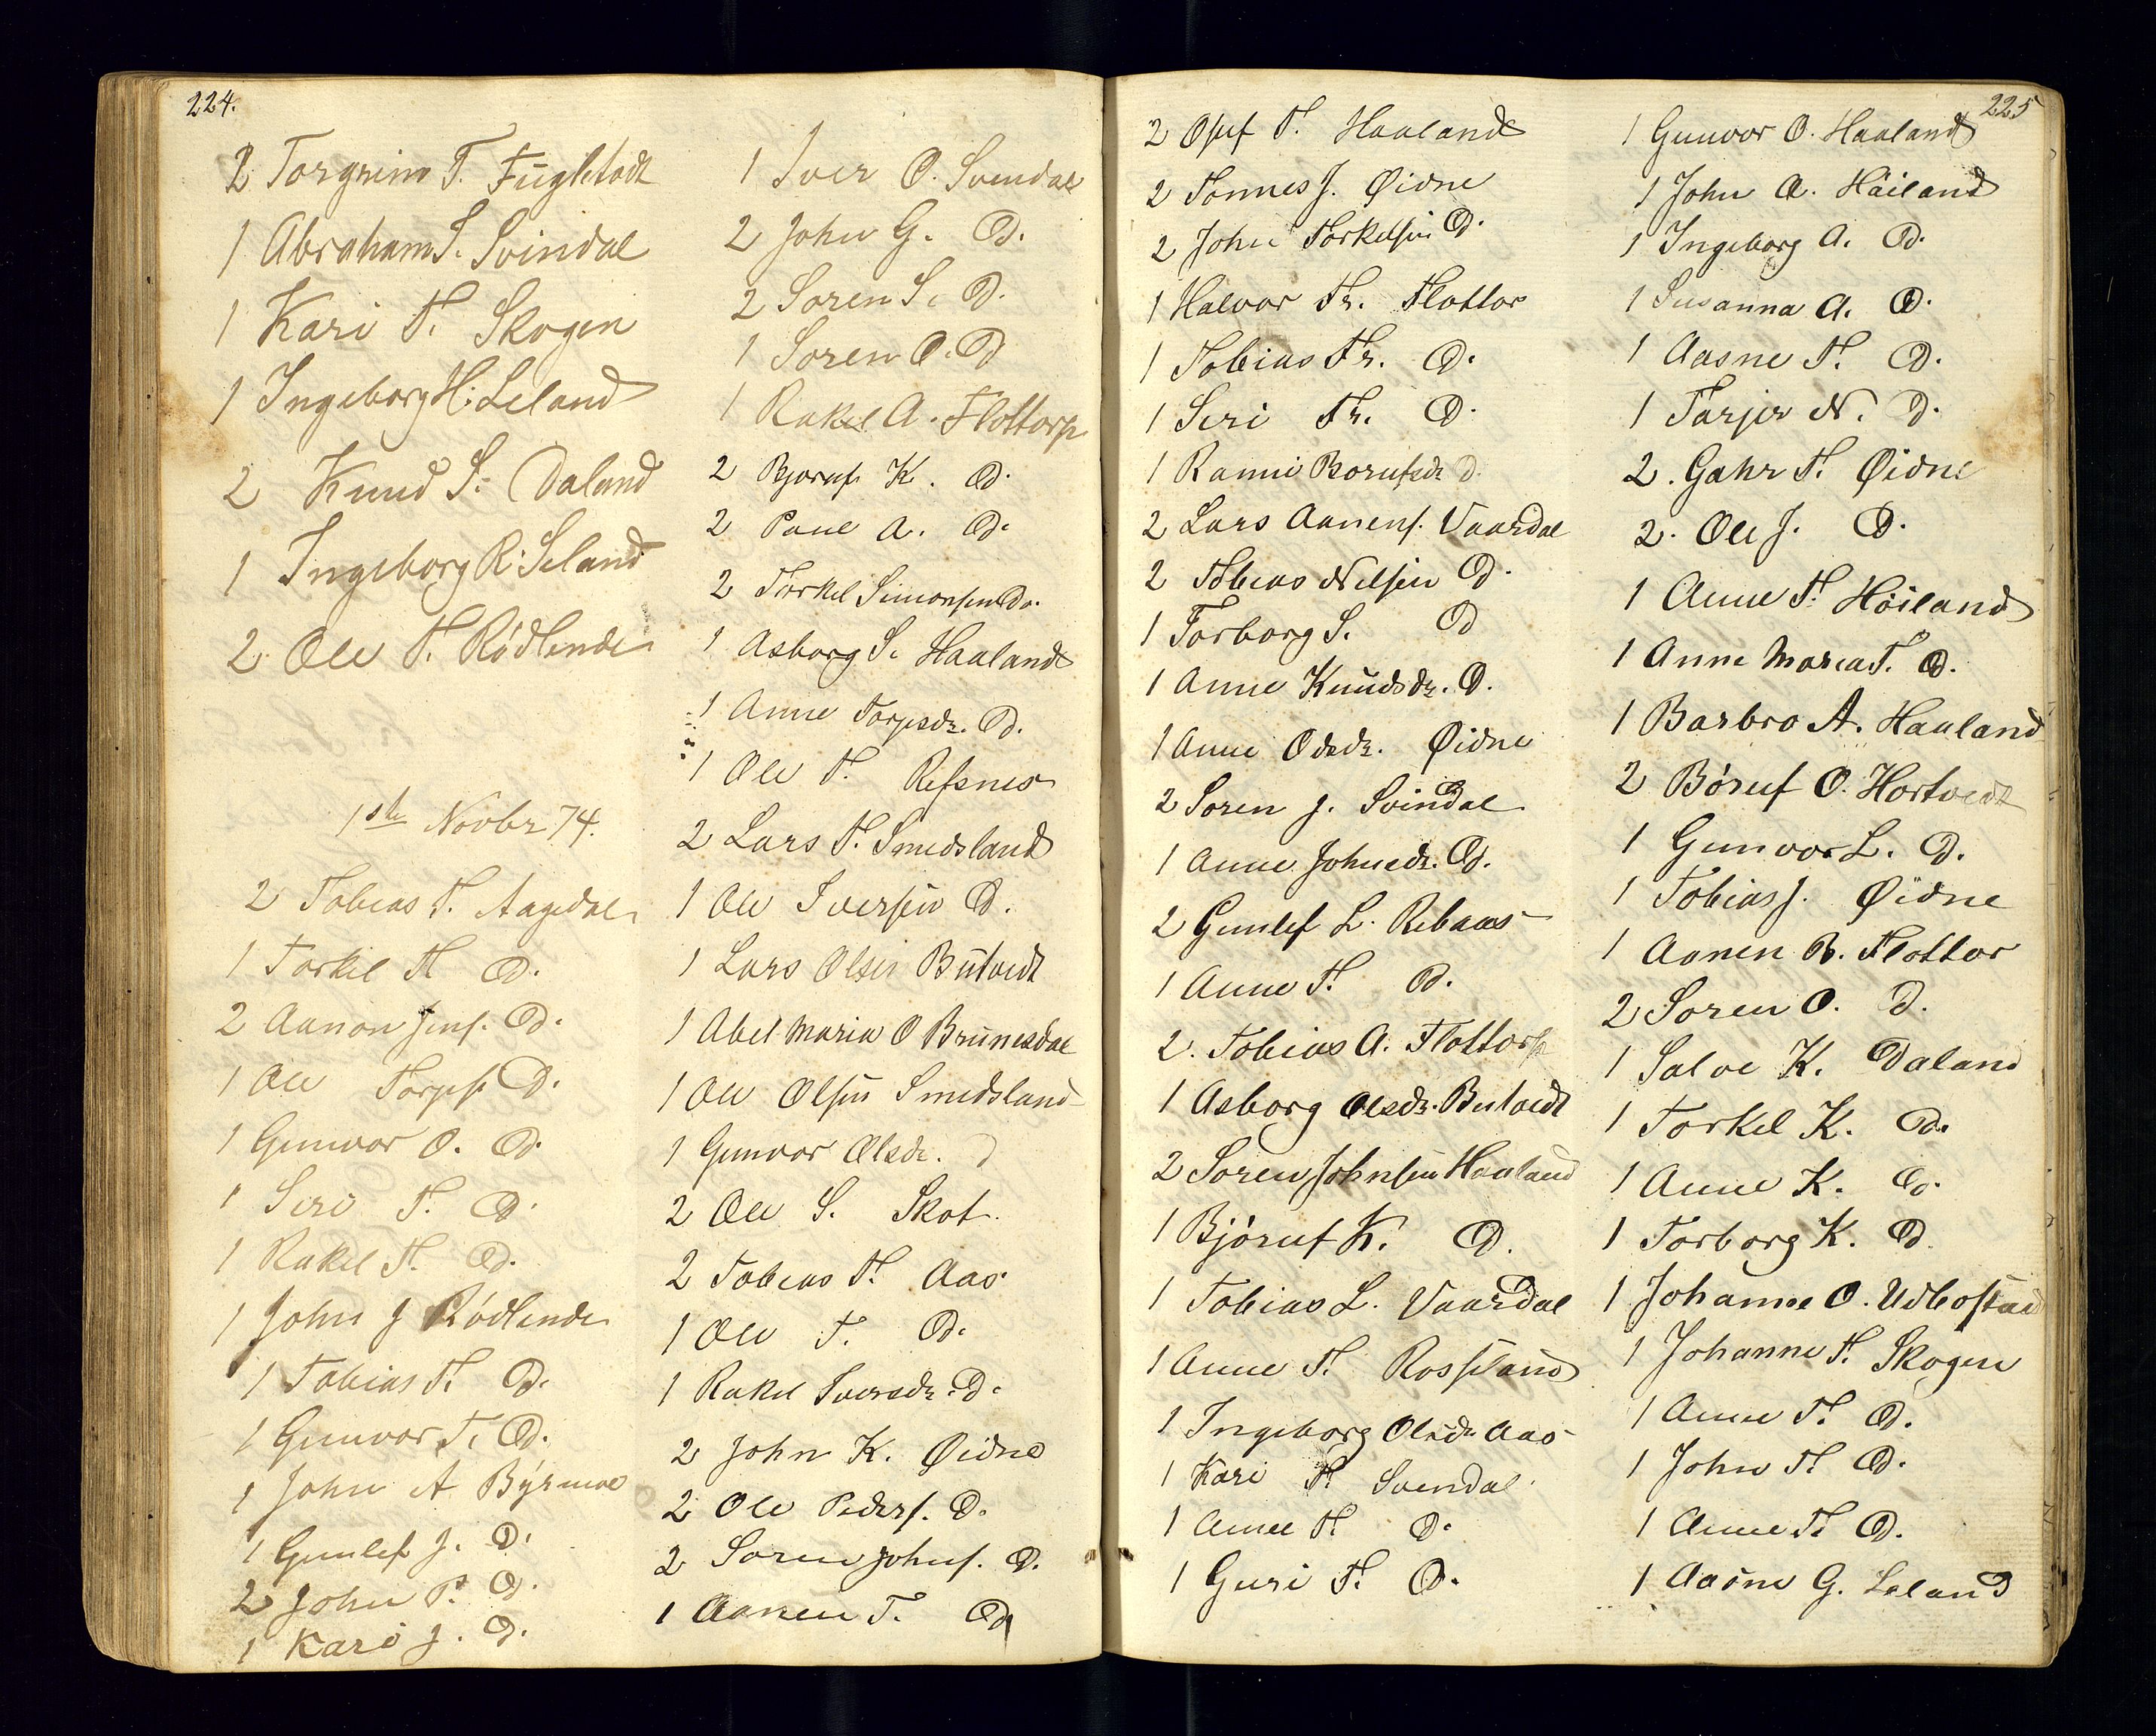 224.
2 Torgrim T. Fuglestvedt
1 Abraham S. Svindal
1 Kari T. Skogen
1 Ingeborg H. Leland
2 Knud S. Daland
1 Ingeborg R. Seland
2 Ole T. Rødlende
1ste Novbr 74.
2 Tobias T. Aagedal
1 Torkel T. D.
2 Aanon Jens. D.
1 Ole Torjes. D.
1 Gunvor O. D.
1 Siri T. D.
1 Rakel T. D.
1 John J Rødlende
1 Tobias T. D.
1 Gunvor T. D.
1 John A Byrmoe
1 Gunlef J. D.
2 John P. D.
1 Kari J. D.
1 Iver O. Svendal
2 John G. D.
2 Soren S. D.
1 Soren O. D
1 Rakel A. Flottorp
2 Bjoruf K. D.
2 Paul A. D.
2 Torkel Simonsen Do.
1 Asborg S. Haaland
1 Anne Torjesdr. D.
1 Ole T. Refsnes
2 Lars T. Smedsland
1 Ole Iversen D.
1 Lars Olsen Butvedt
1 Abel Maria O Brunesdal
1 Ole Olsen Smedsland
1 Gunvor Olsdr. D
2 Ole S. Skot
2 Tobias T. Aas
1 Ole T. D.
1 Rakel Iversdr. D.
2 John K. Øidne
2 Ole Peders. D.
2 Soren Johns. D.
1 Aanen T. D
225
2 Osuf T. Haaland
2 Tonnes J. Øidne
2 John Torkelsen D.
1 Halvor Tr. Flottor
1 Tobias Tr. D.
1 Siri Tr. D.
1 Ranni Borufsdr D.
2 Lars Aanens. Vaardal
2 Tobias Nilsen D.
1 Torborg S. D
1 Anne Knudsdr. D.
1 Anne Odsdr. Øidne
2 Soren J. Svindal
1 Anne Johnsdr. D.
2 Gunlef L. Rebaas
1 Anne T. D.
2. Tobias A. Flottorp
1 Asborg Olsdr. Butvedt
2 Soren Johnsen Haaland
1 Bjøruf K. D.
1 Tobias L. Vaardal
1 Anne T. Rosseland
1 Ingeborg Olsdr Aas
1 Kari T. Svendal
1 Anne T. D.
1 Guri T. D.
1 Gunvor O. Haaland
1 John A. Håiland
1 Ingeborg A. D.
1 Susanna A. D.
1 Aasne T. D.
1 Tarjer N. D.
2. Gahr T. Øidne
2. Ole J. D.
1 Anne T. Høiland
1 Anne Maria T. D.
1 Barbro A. Haaland
2 Børuf O. Hortvedt
1 Gunvor L. D.
1 Tobias J. Øidne
1 Aanen B. Flottor
2 Soren O. D.
1 Salve K. Daland
1 Torkel K. D.
1 Anne K. D.
1 Torborg K. D
1 Johanne O. Udbostad
1 Johanne T. Skogen
1 Anne T. D.
1 John T. D.
1 Anne T. D.
1 Aasne G. Leland